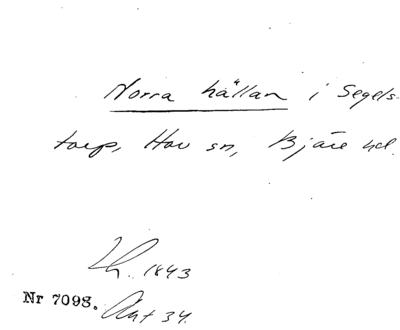 Norra hällan i Segels-
torp, Hov sn, Bjäre hd.
Lh. 1843
Nr 7098. Ant 34.